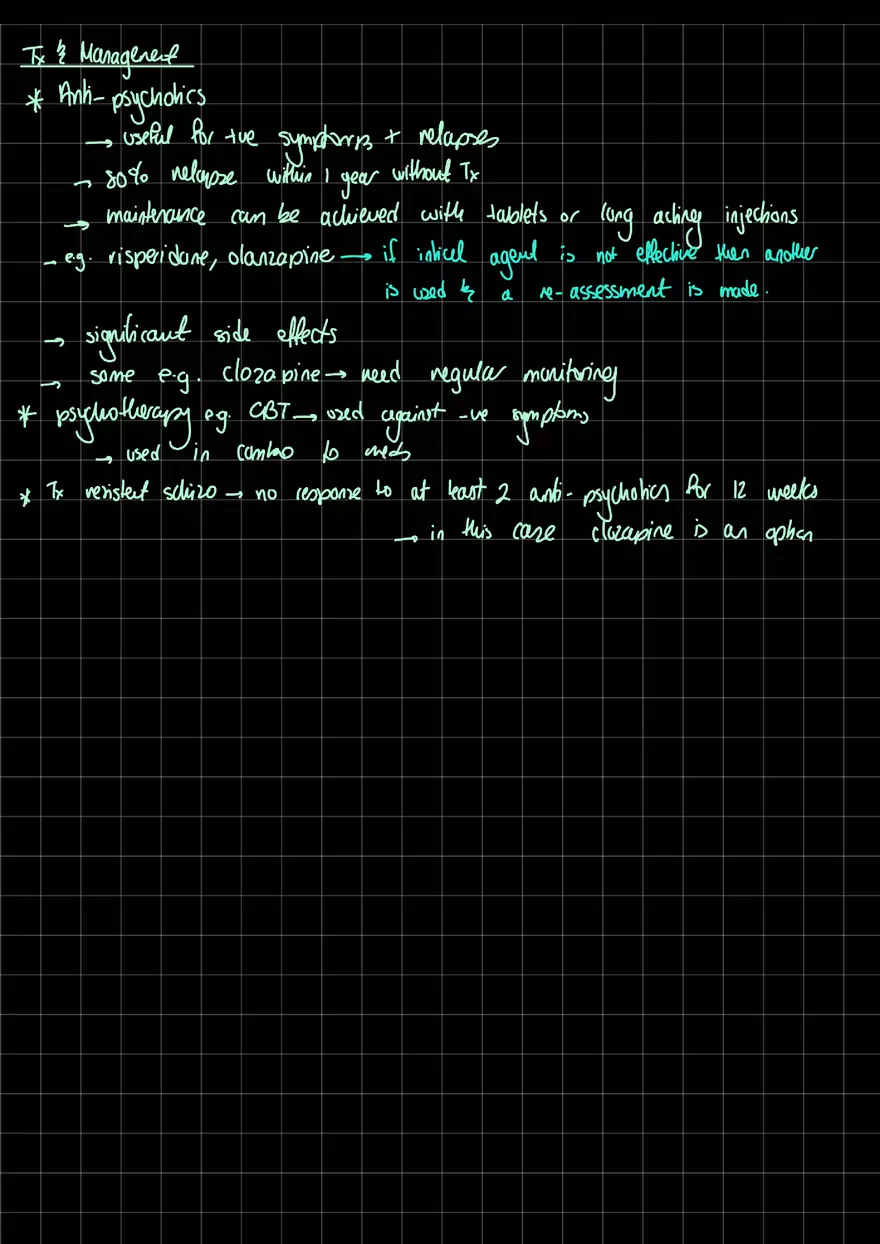 Tx & Management
* Anti-psychotics
→ useful for +ve symptoms + relapses
→ 80% relapse within 1 year without Tx
→ maintenance can be achieved with tablets or long acting injections
→ eg. risperidone, olanzapine → if initial agent is not effective then another
is used & a re-assessment is made.
→ significant side effects
→ some e.g. clozapine → need regular monitoring
* psychotherapy eg. CBT → used against -ve symptoms
→ used in combo to meds
* Tx resistent schizo → no response to at least 2 anti-psychotics for 12 weeks
→ in this case clozapine is an option